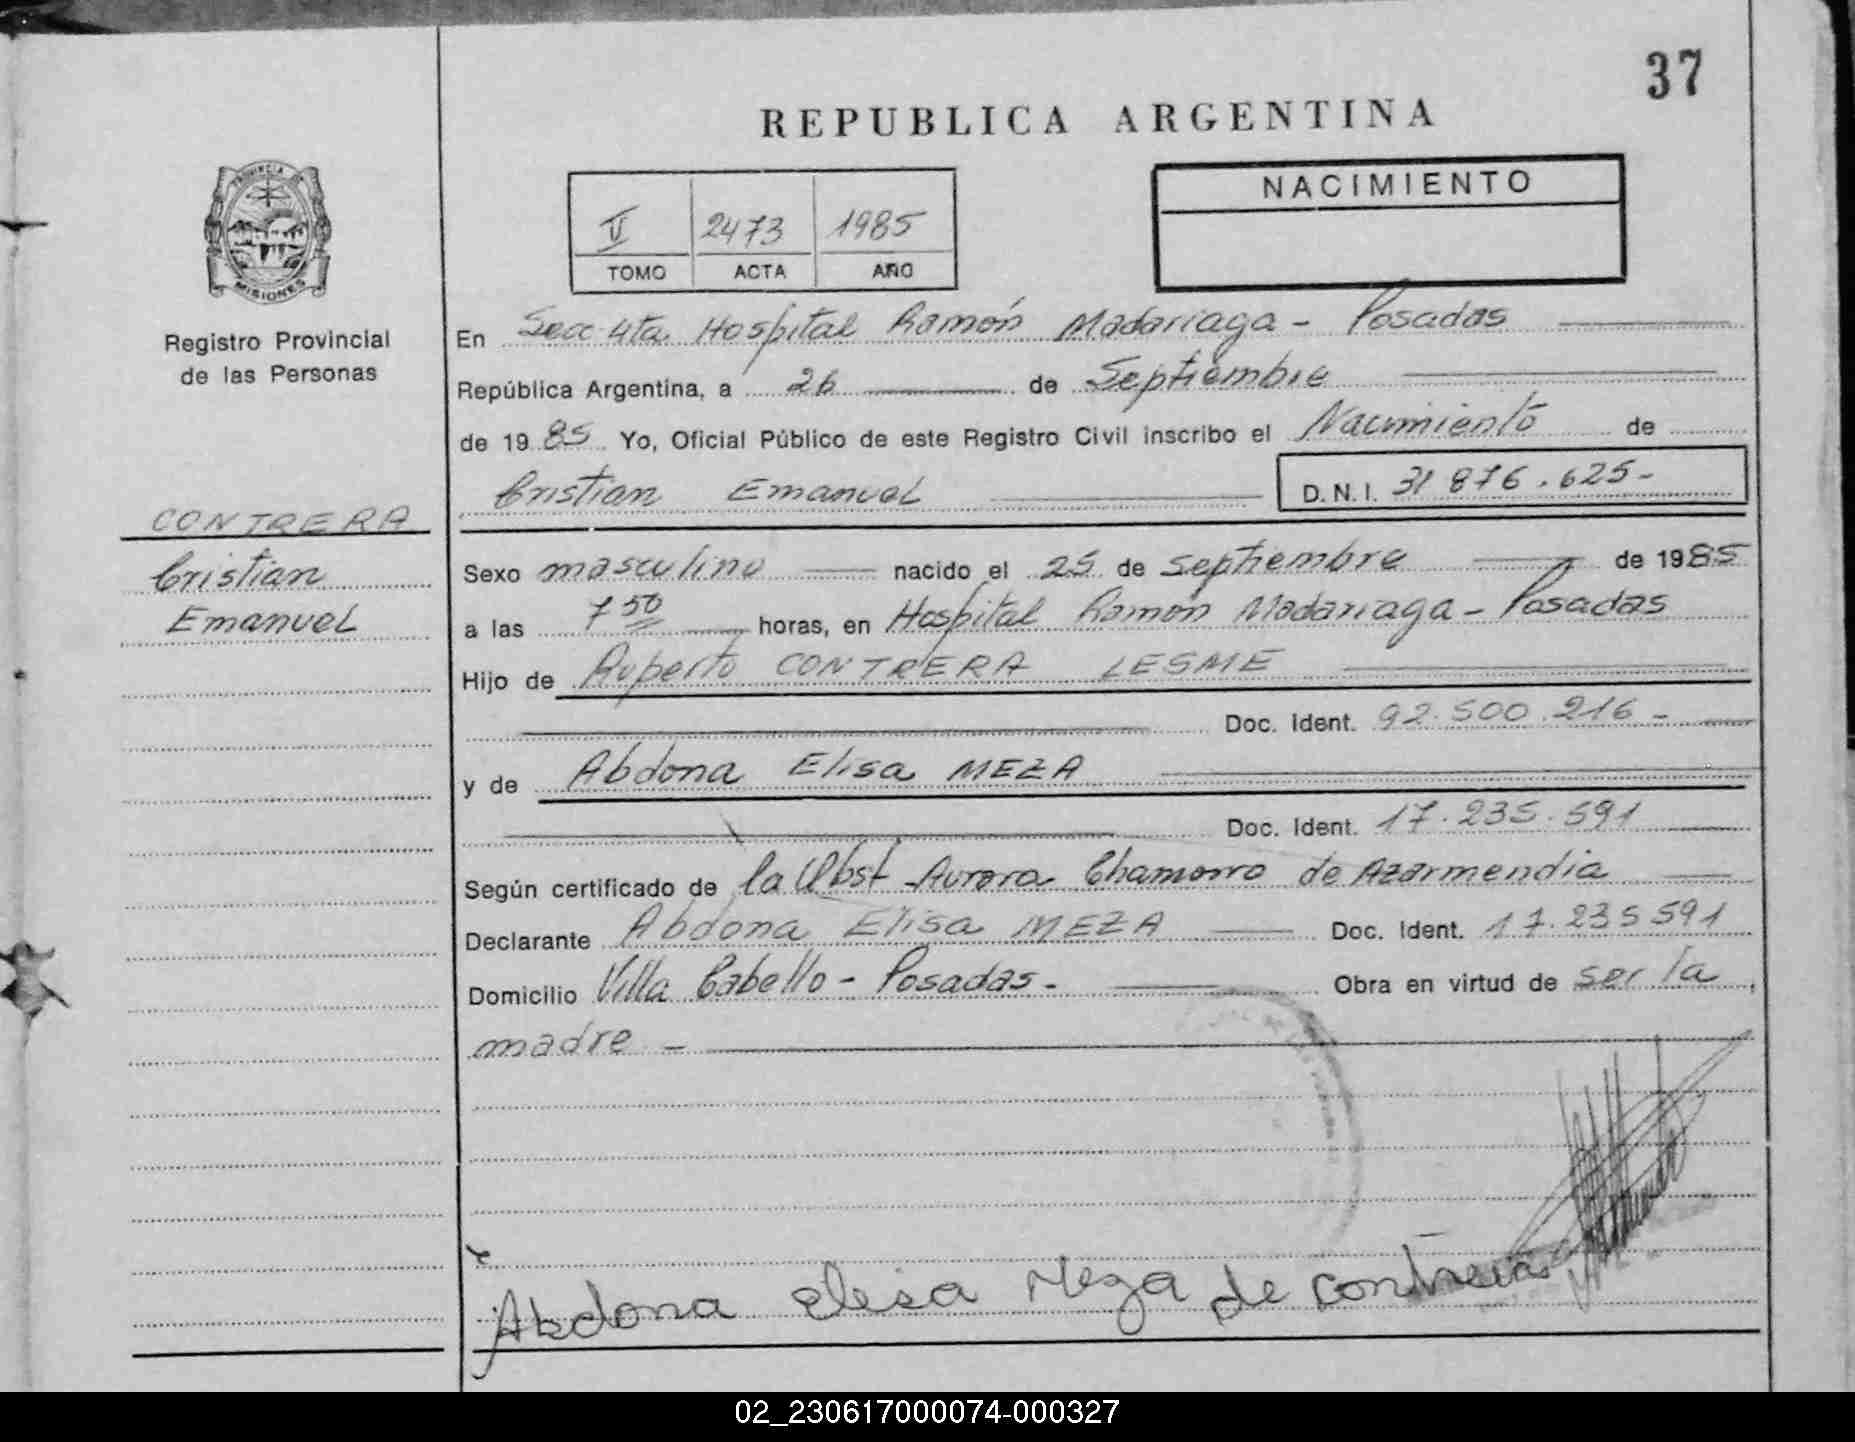 37
REPUBLICA ARGENTINA
PROVINCIA DE
MISIONES
Registro Provincial
de las Personas
CONTRERA
Cristian
Emanuel
V 2473 1985
TOMO ACTA AÑO
NACIMIENTO
En Secc 4ta Hospital Ramón Madariaga - Posadas
República Argentina, a 26 de Septiembre
de 1985 Yo, Oficial Público de este Registro Civil inscribo el Nacimiento de
Cristian Emanuel D.N.I. 31 876.625-
Sexo masculino nacido el 25 de septiembre de 1985
a las 7 50 horas, en Hospital Ramón Madariaga - Posadas
Hijo de Ruperto CONTRERA LESME
Doc. Ident. 92.500.216-
y de Abdona Elisa MEZA
Doc. Ident. 17.235.591
Según certificado de la Obst Aurora Chamorro de Azarmendia
Declarante Abdona Elisa MEZA Doc. Ident. 17.235591
Domicilio Villa Cabello - Posadas - Obra en virtud de ser la
madre -
Abdona elisa Meza de contrera
02_230617000074-000327